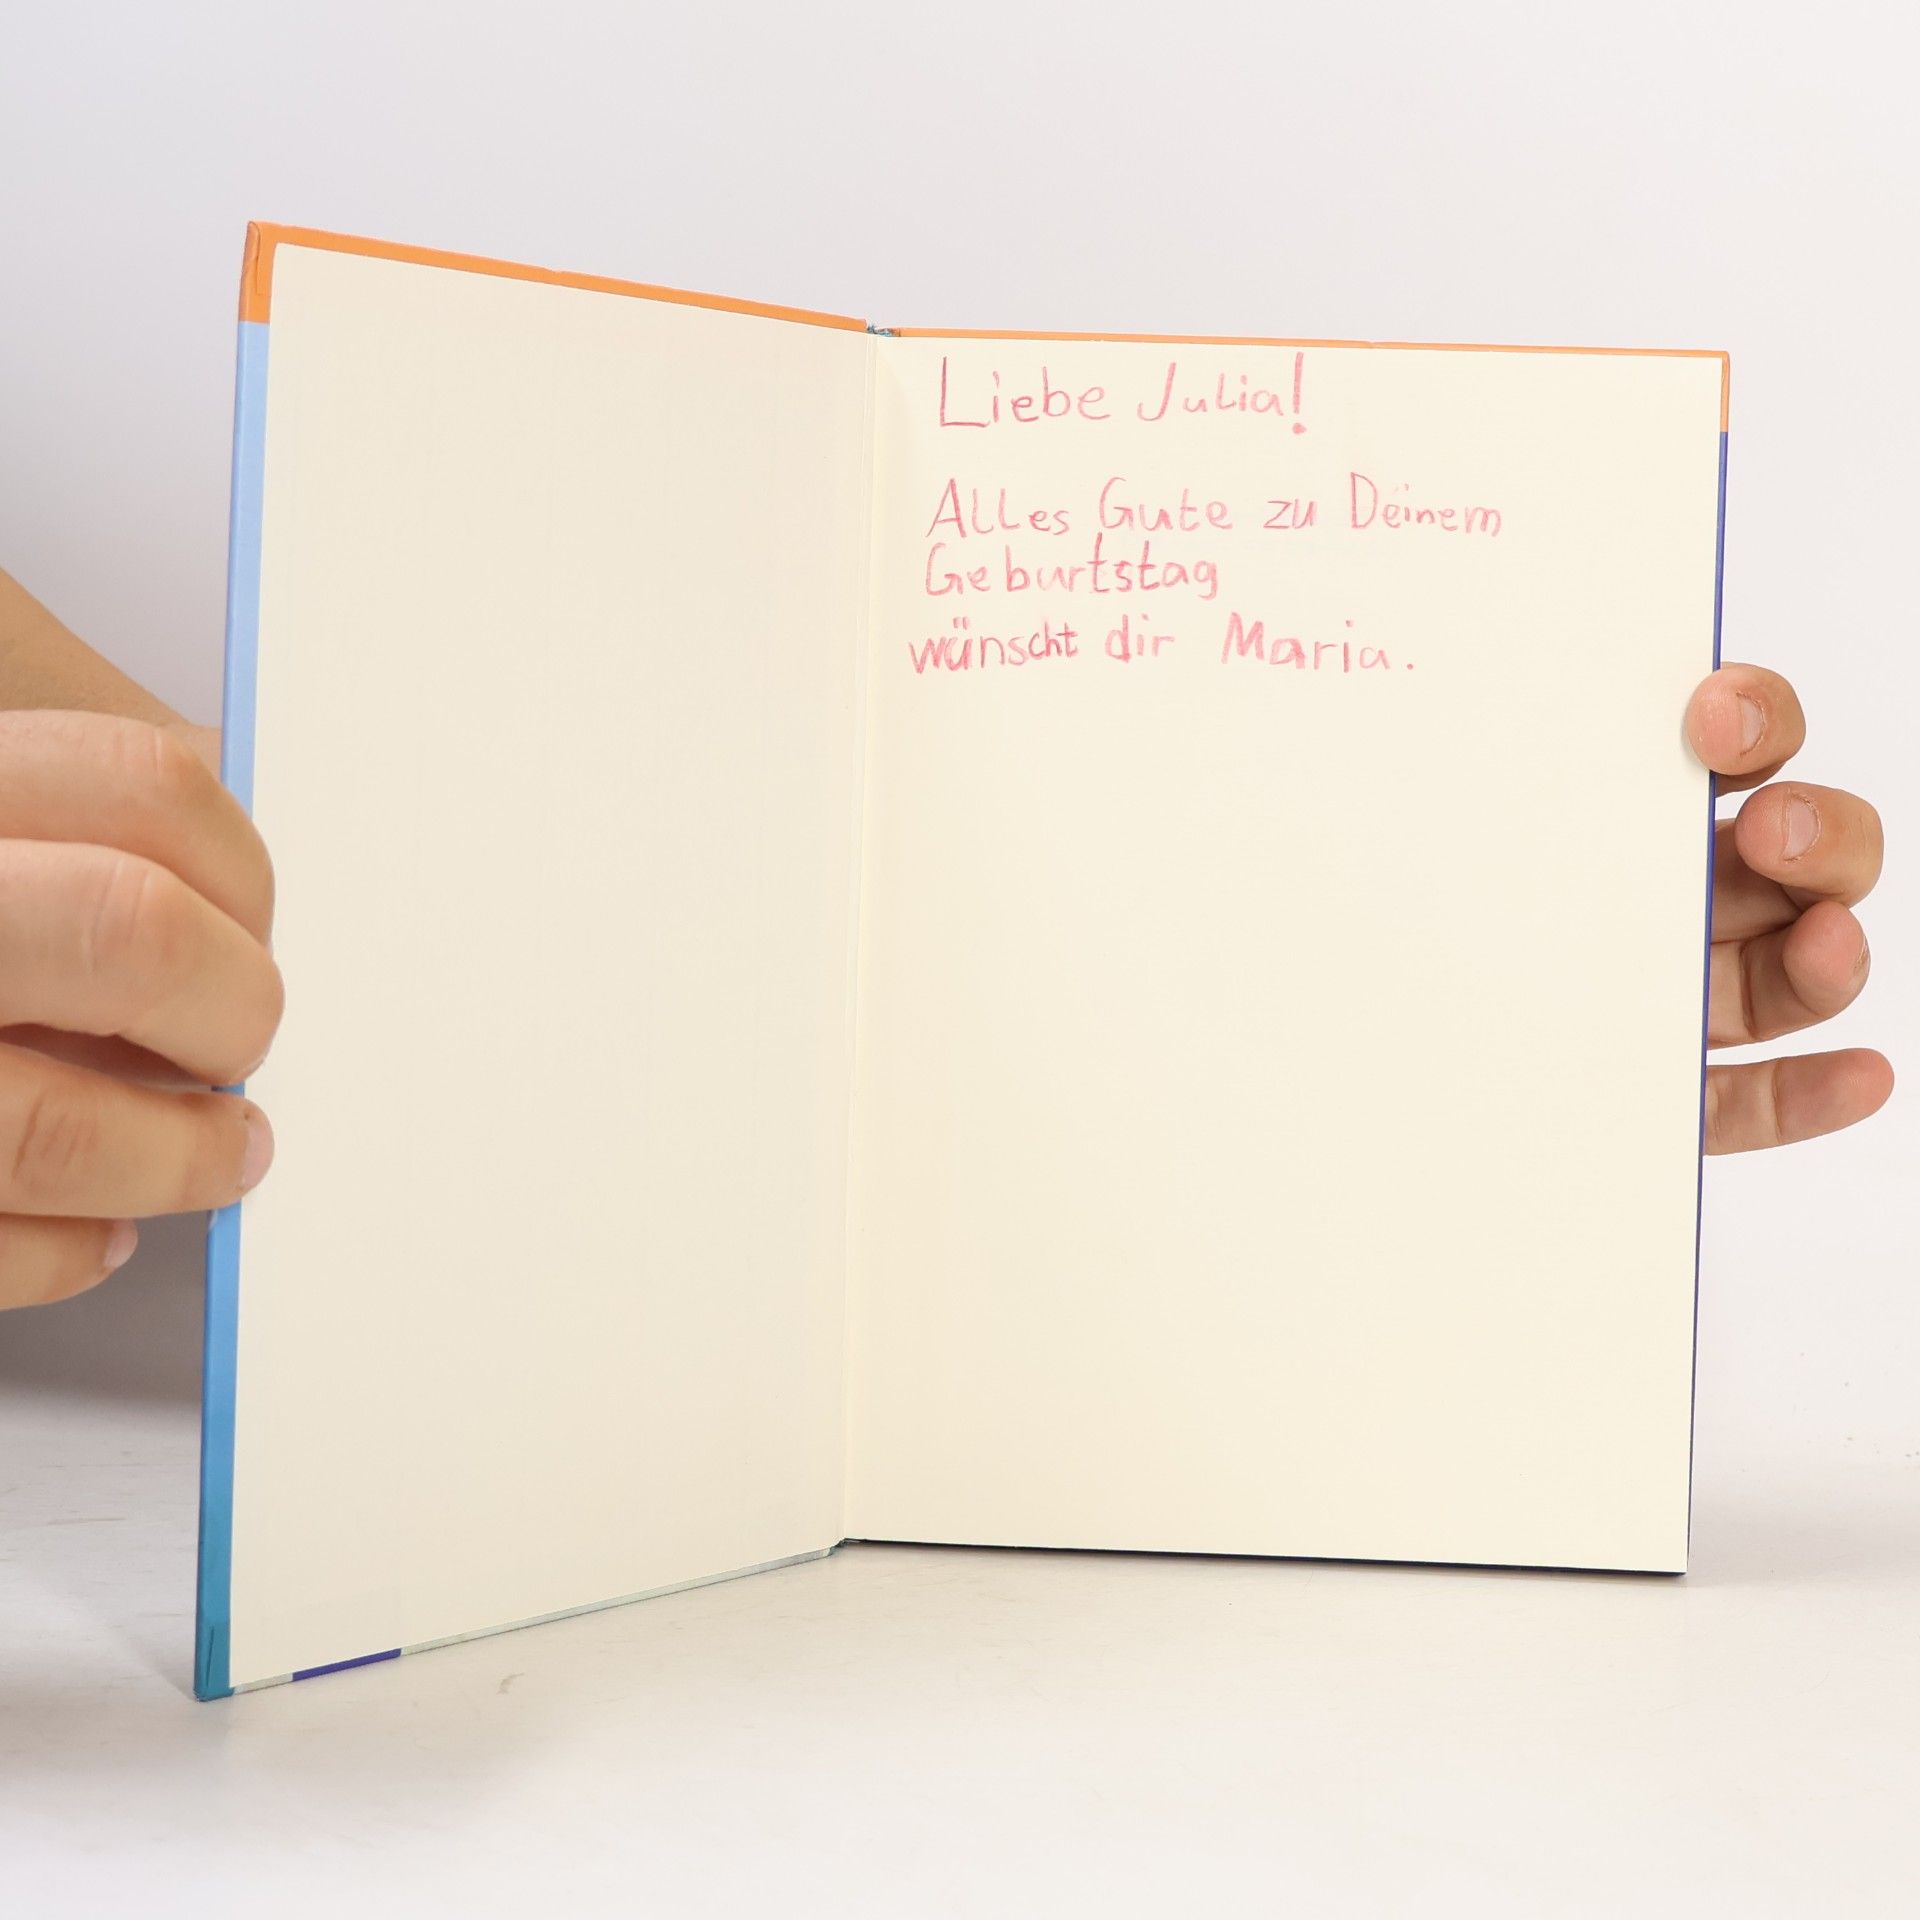 Liebe Julia!
Alles Gute zu Deinem
Geburtstag
wünscht dir Maria.